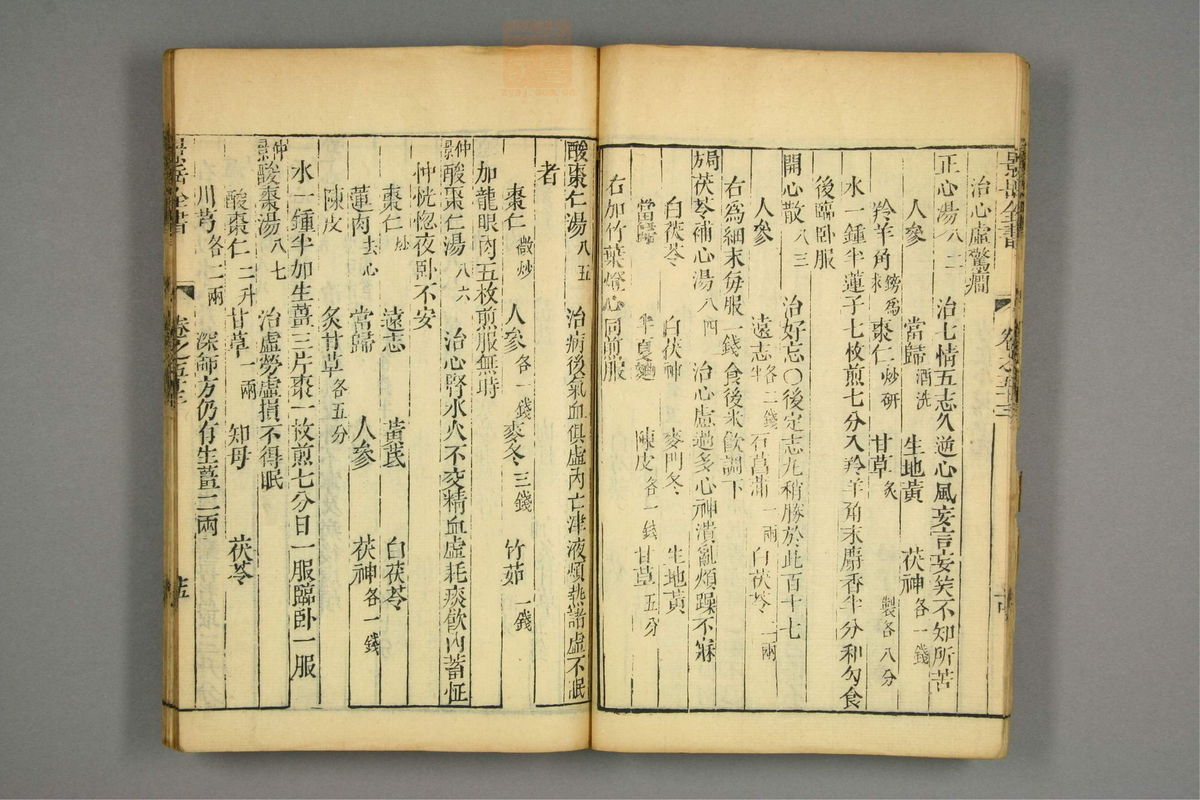 景岳全書 卷之五十三
治心虛驚癇
正心湯八二 治七情五志久逆心風妄言妄笑不知所苦
人參 當歸酒洗 生地黃 茯神各一錢
羚羊角鎊爲末 棗仁炒研 甘草炙 製各八分
水一鍾半蓮子七枚煎七分入羚羊角末麝香半分和勻食
後臨卧服
開心散八三 治好忘○後定志丸稍勝於此百十七
人參 遠志各二錢半 石菖蒲一兩 白茯苓二兩
右爲細末每服一錢食後米飲調下
局茯苓補心湯八四 治心虛過多心神潰亂煩躁不寐
白茯苓 白茯神 麥門冬 生地黃
當歸 半夏麯 陳皮各一錢 甘草五分
右加竹葉燈心同煎服
酸棗仁湯八五 治病後氣血俱虛內亡津液煩熱諸虛不眠
者
棗仁微炒 人參各一錢 麥冬三錢 竹茹一錢
加龍眼肉五枚煎服無時
仲景酸棗仁湯八六 治心腎水火不交精血虛耗痰飲內蓄怔
忡恍惚夜卧不安
棗仁炒 遠志 黃芪 白茯苓
蓮肉去心 當歸 人參 茯神各一錢
陳皮 炙甘草各五分
水一鍾半加生薑三片棗一枚煎七分日一服臨卧一服
仲景酸棗湯八七 治虛勞虛損不得眠
酸棗仁二升 甘草一兩 知母 茯苓
川芎各二兩 深師方仍有生薑二兩
景岳全書 卷之五十三